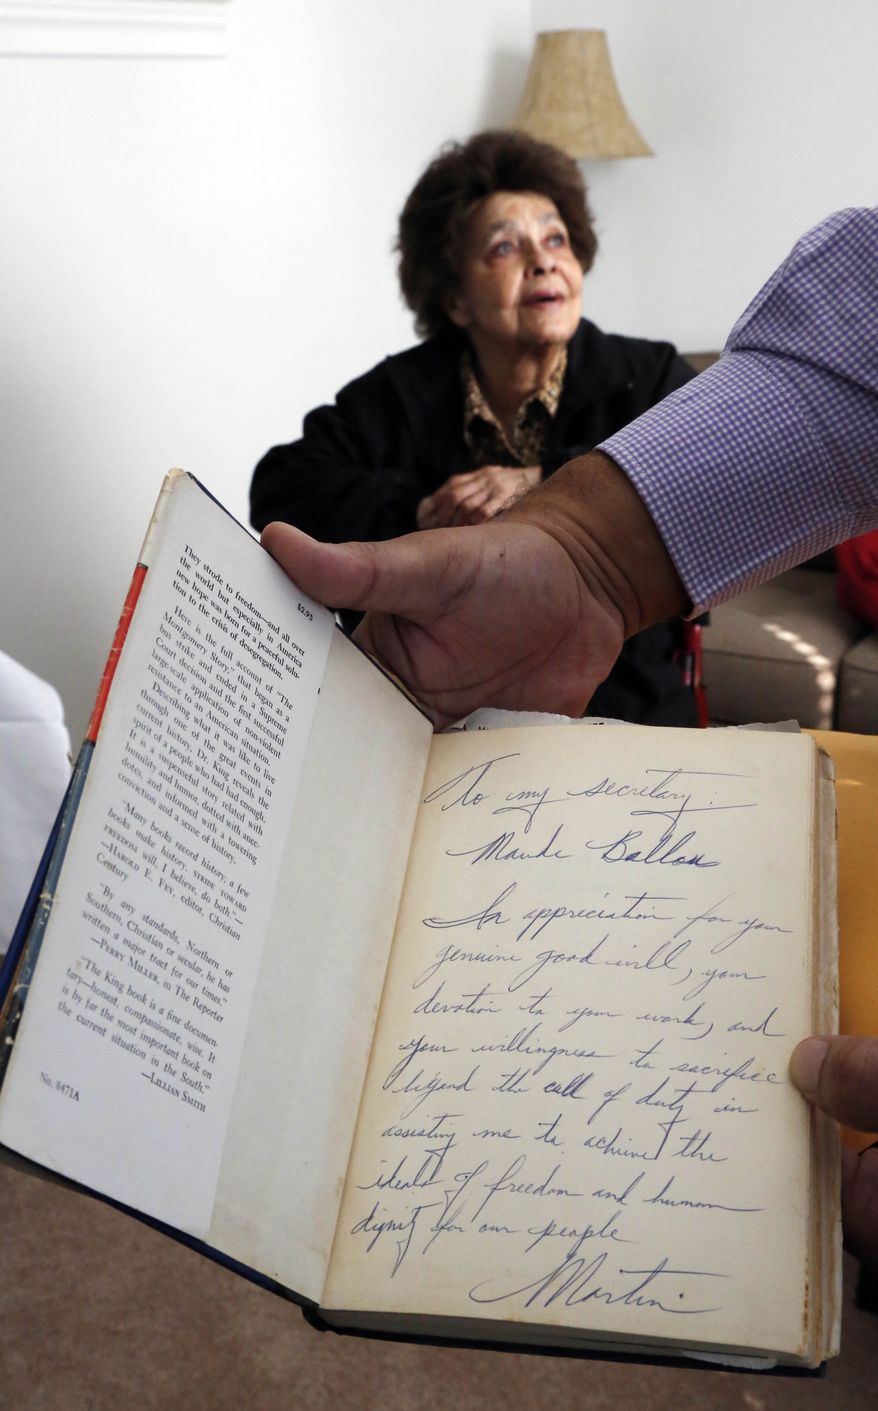 $2.95
They strode to freedom—and all over
the world but especially in America
new hope was born for a peaceful solu-
tion to the crisis of desegregation.
Here is the full account of "The
Montgomery Story," that began as a
bus strike and ended in a Supreme
Court decision and the first successful
large-scale application of nonviolent
resistance to an American situation.
Describing what it was like to live
through one of the great events in
current history, Dr. King reveals the
spirit of a people who had had enough.
It is a suspenseful story related with
humility and humor, dotted with anec-
dotes, and informed with a towering
conviction and a sense of history.
"Many books record history; a few
books make history. STRIDE TOWARD
FREEDOM will, I believe, do both."—
—HAROLD E. FEY, editor, Christian
Century
"By any standards, Northern or
Southern, Christian or secular, he has
written a major tract for our times."
—PERRY MILLER, in The Reporter
"The King book is a fine documen-
tary—honest, compassionate, wise. It
is by far the most important book on
the current situation in the South."
—LILLIAN SMITH
No. 8471A
To my secretary:
Maude Ballou
In appreciation for your
genuine good will, your
devotion to your work, and
your willingness to sacrifice
beyond the call of duty in
assisting me to achieve the
ideals of freedom and human
dignity for our people
Martin